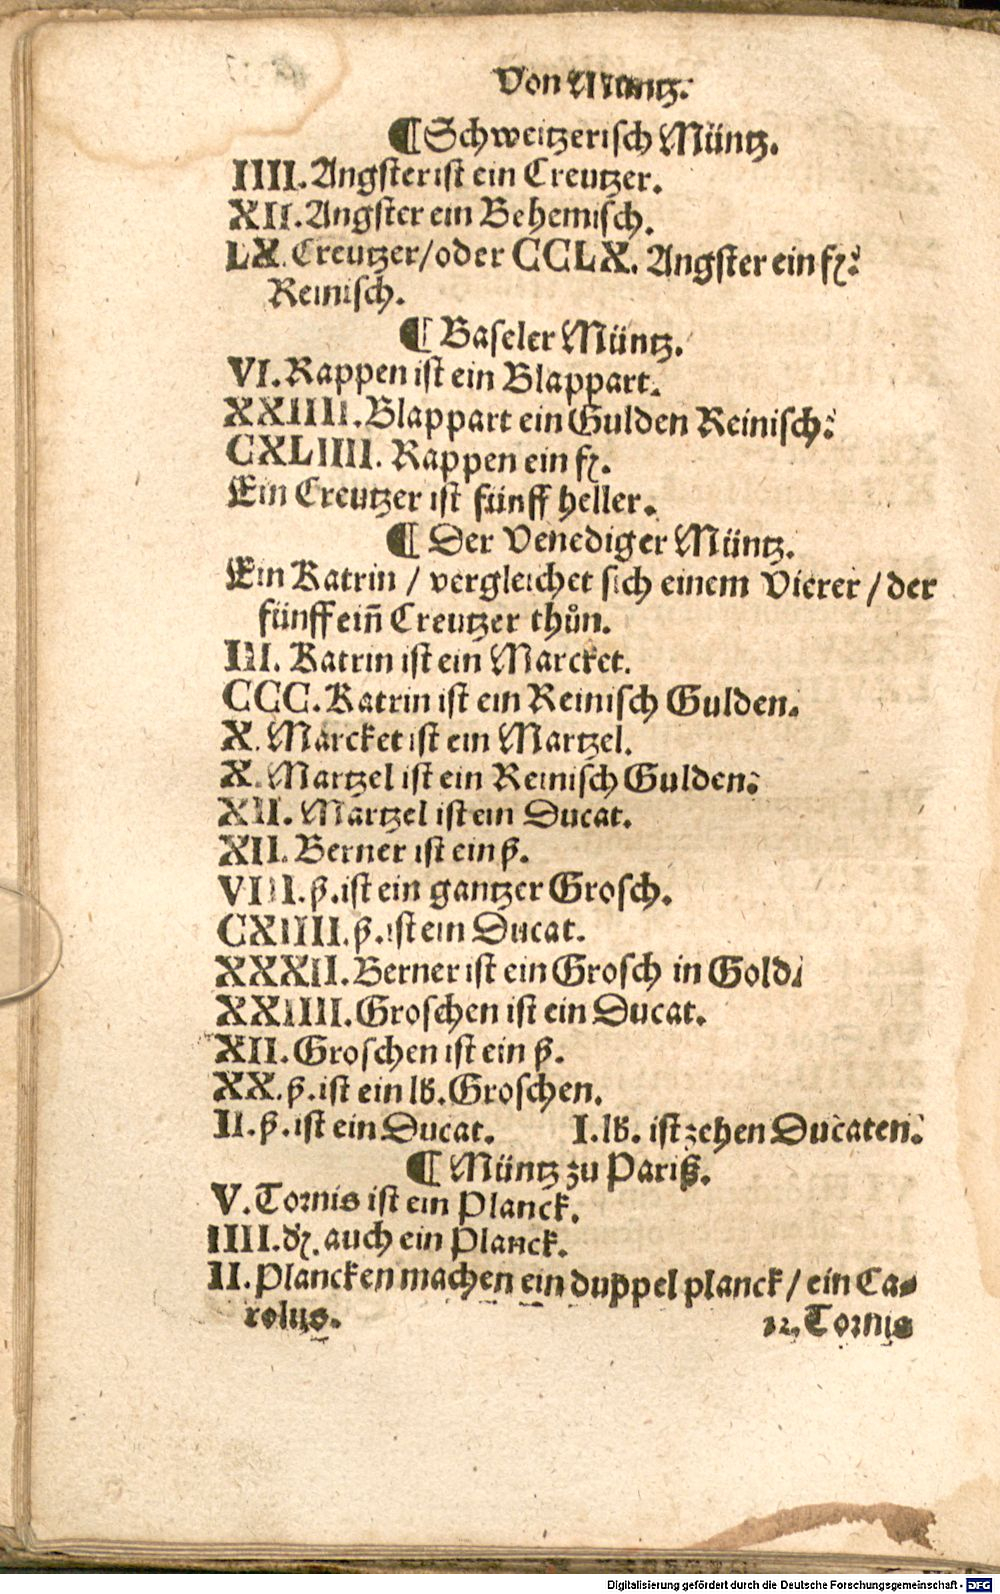 Von Müntz.
¶ Schweitzerisch Müntz.
IIII. Angster ist ein Creutzer.
XII. Angster ein Behemisch.
LX. Creutzer/oder CCLX. Angster ein fl.
Reinisch.
¶ Baseler Müntz.
VI. Rappen ist ein Blappart.
XXIIII. Blappart ein Gulden Reinisch.
CXLIIII. Rappen ein fl.
Ein Creutzer ist fünff heller.
¶ Der Venediger Müntz.
Ein Katrin / vergleichet sich einem Vierer / der
fünff ein̄ Creutzer thůn.
III. Katrin ist ein Marcket.
CCC. Katrin ist ein Reinisch Gulden.
X. Marcket ist ein Martzel.
X. Martzel ist ein Reinisch Gulden.
XII. Martzel ist ein Ducat.
XII. Berner ist ein ß.
VIII. ß. ist ein gantzer Grosch.
CXIIII. ß. ist ein Ducat.
XXXII. Berner ist ein Grosch in Gold.
XXIIII. Groschen ist ein Ducat.
XII. Groschen ist ein ß.
XX. ß. ist ein lb. Groschen.
II. ß. ist ein Ducat. I. lb. ist zehen Ducaten.
¶ Müntz zu Pariß.
V. Tornis ist ein Planck.
IIII. auch ein Planck.
II. Plancken machen ein duppel planck / ein Ca-
rolus. 12. Tornis
Digitalisierung gefördert durch die Deutsche Forschungsgemeinschaft - DFG